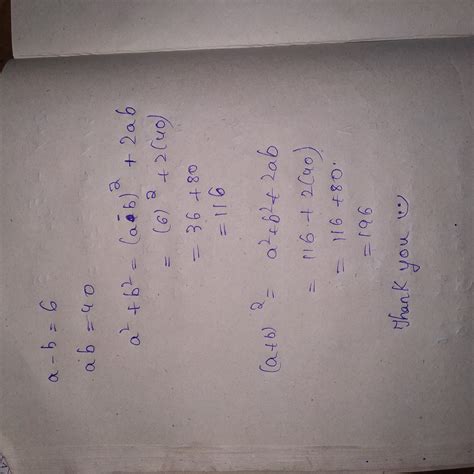 a - b = 6
ab = 40
a² + b² = (a-b)² + 2ab
= (6)² + 2(40)
= 36 + 80
= 116
(a+b)² = a² + b² + 2ab
= 116 + 2(40)
= 116 + 80
= 196
Thank you